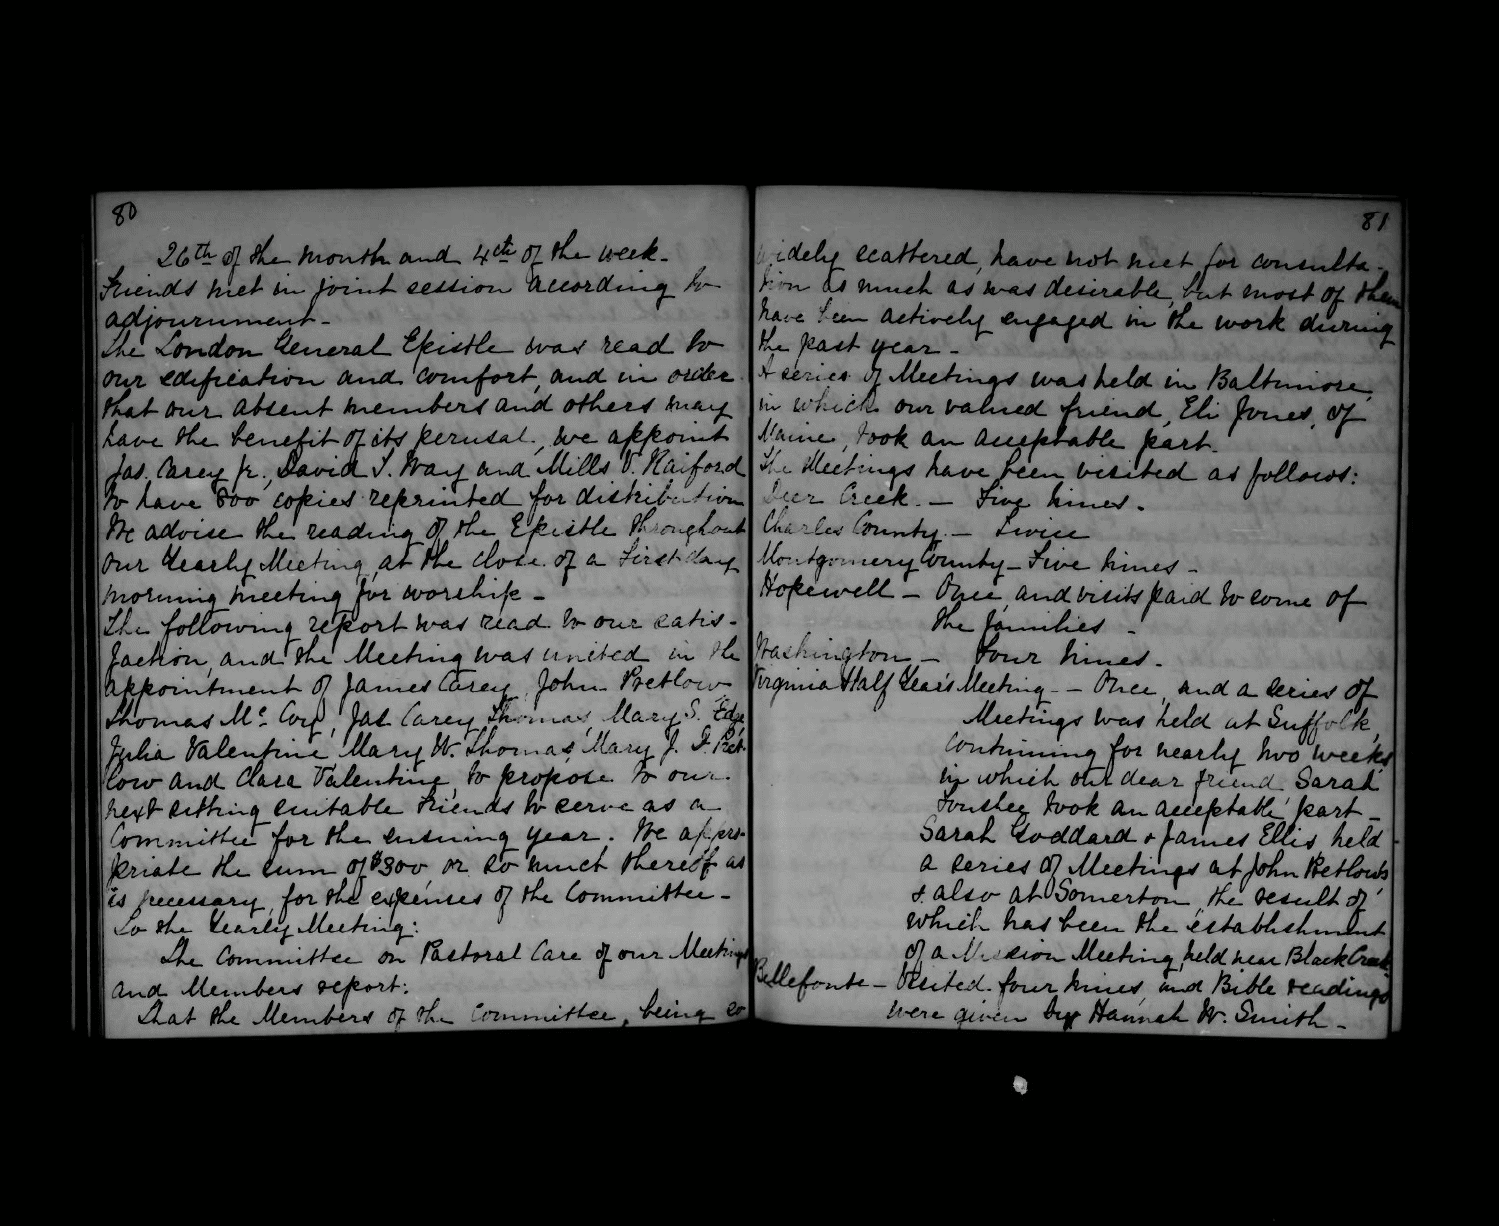 80
26th of the month and 4th of the week.
Friends met in joint session according to
adjournment.
The London General Epistle was read to
our edification and comfort, and in order
that our absent members and others may
have the benefit of its perusal, we appoint
Jas. Carey Jr., David S. Way and Mills V. Raiford
to have 800 copies reprinted for distribution
We advise the reading of the Epistle throughout
our Yearly Meeting, at the close of a First day
morning meeting for worship -
The following report was read to our satis-
faction, and the Meeting was united in the
appointment of James Carey, John Pretlow
Thomas Mc Coy, Jas. Carey Thomas, Mary S. Edge,
Julia Valentine, Mary W. Thomas, Mary J. P. Pret-
low and Clara Valentine, to propose to our
next sitting suitable Friends to serve as a
Committee for the ensuing year. We appro-
priate the sum of $300 or so much thereof as
is necessary, for the expenses of the Committee -
To the Yearly Meeting:
The Committee on Pastoral Care of our Meetings
and Members report:
That the Members of the Committee, being so
81
widely scattered, have not met for consulta-
tion as much as was desirable, but most of them
have been actively engaged in the work during
the past year -
A series of Meetings was held in Baltimore,
in which our valued friend, Eli Jones, of
Maine, took an acceptable part.
The Meetings have been visited as follows:
Deer Creek - Five times.
Charles County. - Twice
Montgomery County - Five times -
Hopewell - Once, and visits paid to some of
the families -
Washington - Four times.
Virginia Half Year's Meeting - - Once, and a series of
Meetings was held at Suffolk,
continuing for nearly two weeks,
in which our dear friend Sarah
took an acceptable part -
Sarah Goddard & James Ellis held
a series of Meetings at John Pretlow's
& also at Somerton, the result of
which has been the establishment
of a Mission Meeting, held near Black Creek.
Bellefonte - Visited four times, and Bible readings
were given by Hannah W. Smith -